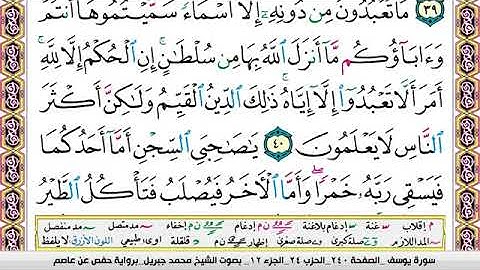 ٣٩ مَا تَعْبُدُونَ مِن دُونِهِۦٓ إِلَّآ أَسْمَآءً سَمَّيْتُمُوهَآ أَنتُمْ
وَءَابَآؤُكُم مَّآ أَنزَلَ ٱللَّهُ بِهَا مِن سُلْطَٰنٍ ۚ إِنِ ٱلْحُكْمُ إِلَّا لِلَّهِ ۚ
أَمَرَ أَلَّا تَعْبُدُوٓا۟ إِلَّآ إِيَّاهُ ۚ ذَٰلِكَ ٱلدِّينُ ٱلْقَيِّمُ وَلَٰكِنَّ أَكْثَرَ
ٱلنَّاسِ لَا يَعْلَمُونَ ٤٠ يَٰصَىٰحِبَىِ ٱلسِّجْنِ أَمَّآ أَحَدُكُمَا
فَيَسْقِى رَبَّهُۥ خَمْرًا ۖ وَأَمَّا ٱلْءَاخَرُ فَيُصْلَبُ فَتَأْكُلُ ٱلطَّيْرُ
م إقلاب غنة إدغام بلاغنة ن م إدغام ن م إخفاء مد متصل مد منفصل
صلة كبرى صلة صغرى إظهار ن م قلقلة مد لازم اللون الأزرق لا يلفظ
سورة يوسف _الصفحة ٢٤٠_الحزب ٢٤_الجزء ١٢_ بصوت الشيخ محمد جبريل_برواية حفص عن عاصم